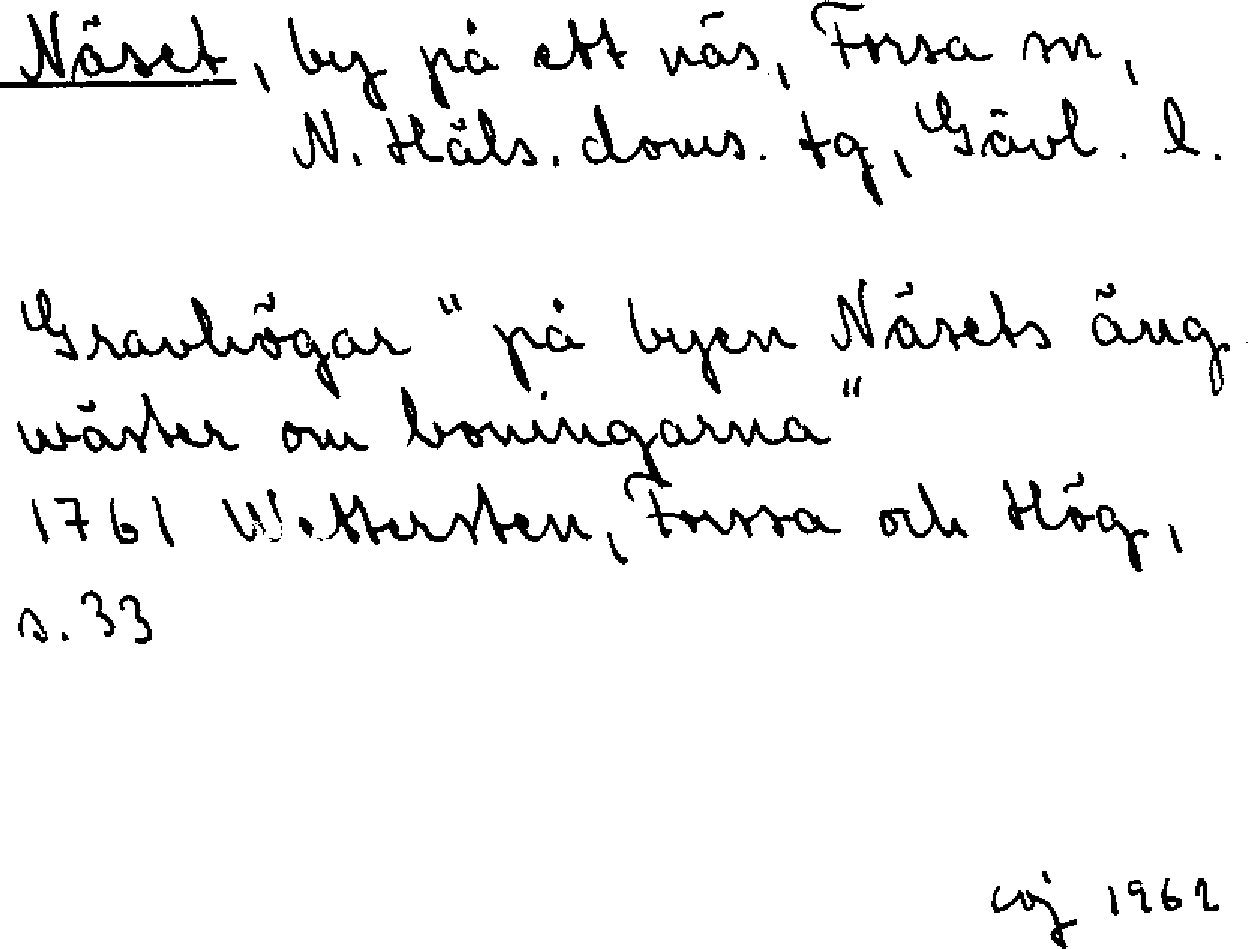 Näset, by på ett näs, Forsa sn,
N. Häls. doms. tg, Gävl. l.
Gravhögar "på byen Näsets äng
wäster om boningarna"
1761 Wettersten, Forssa och Hög,
s. 33
coj 1962